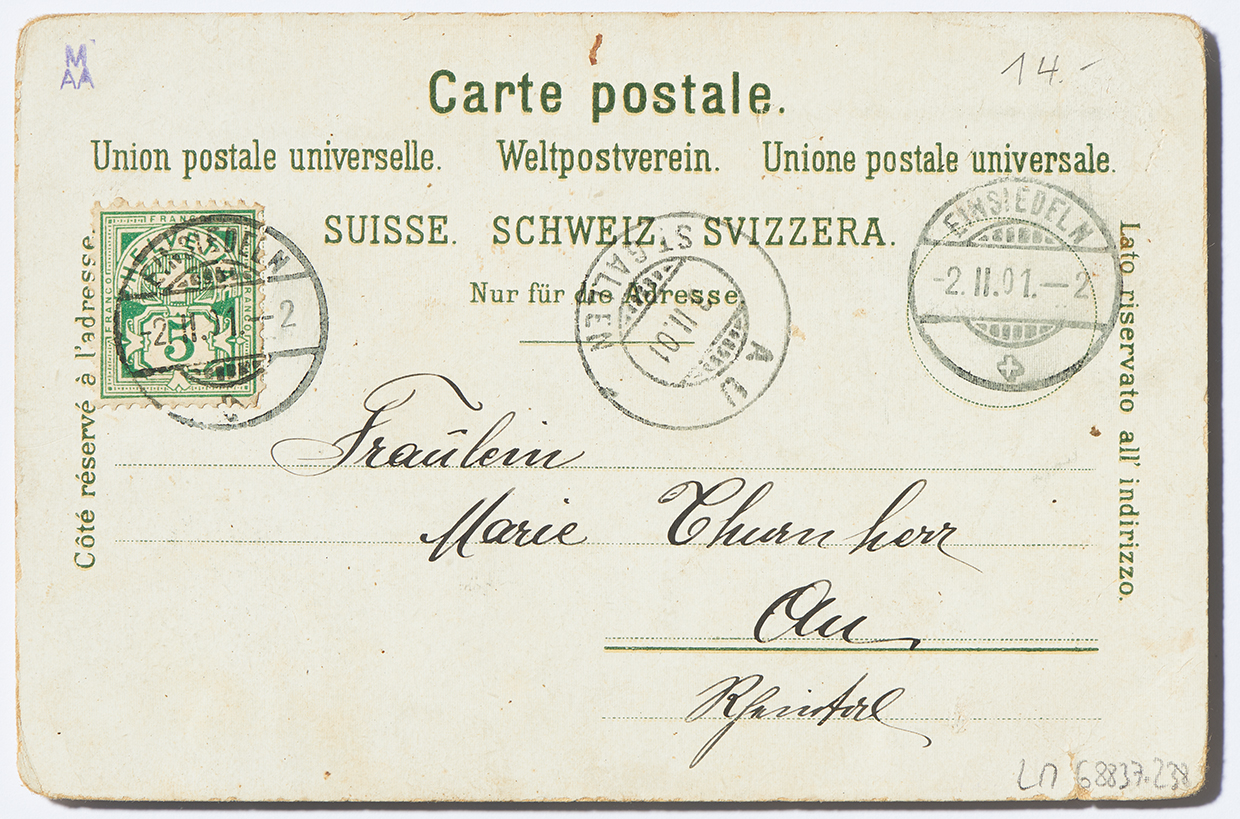 M
AA
14.-
Carte postale.
Union postale universelle. Weltpostverein. Unione postale universale.
SUISSE. SCHWEIZ. SVIZZERA.
Nur für die Adresse.
Côté réservé à l'adresse.
Lato riservato all' indirizzo.
FRANCO
HELVETIA
FRANCO
FRANCO
5
EINSIEDELN
-2.II.01.-2
AU
ST. GALLEN
II.01
EINSIEDELN
-2.II.01.-2
Fräulein
Marie Thurnherr
Au
Rheintal
LM 68837.238